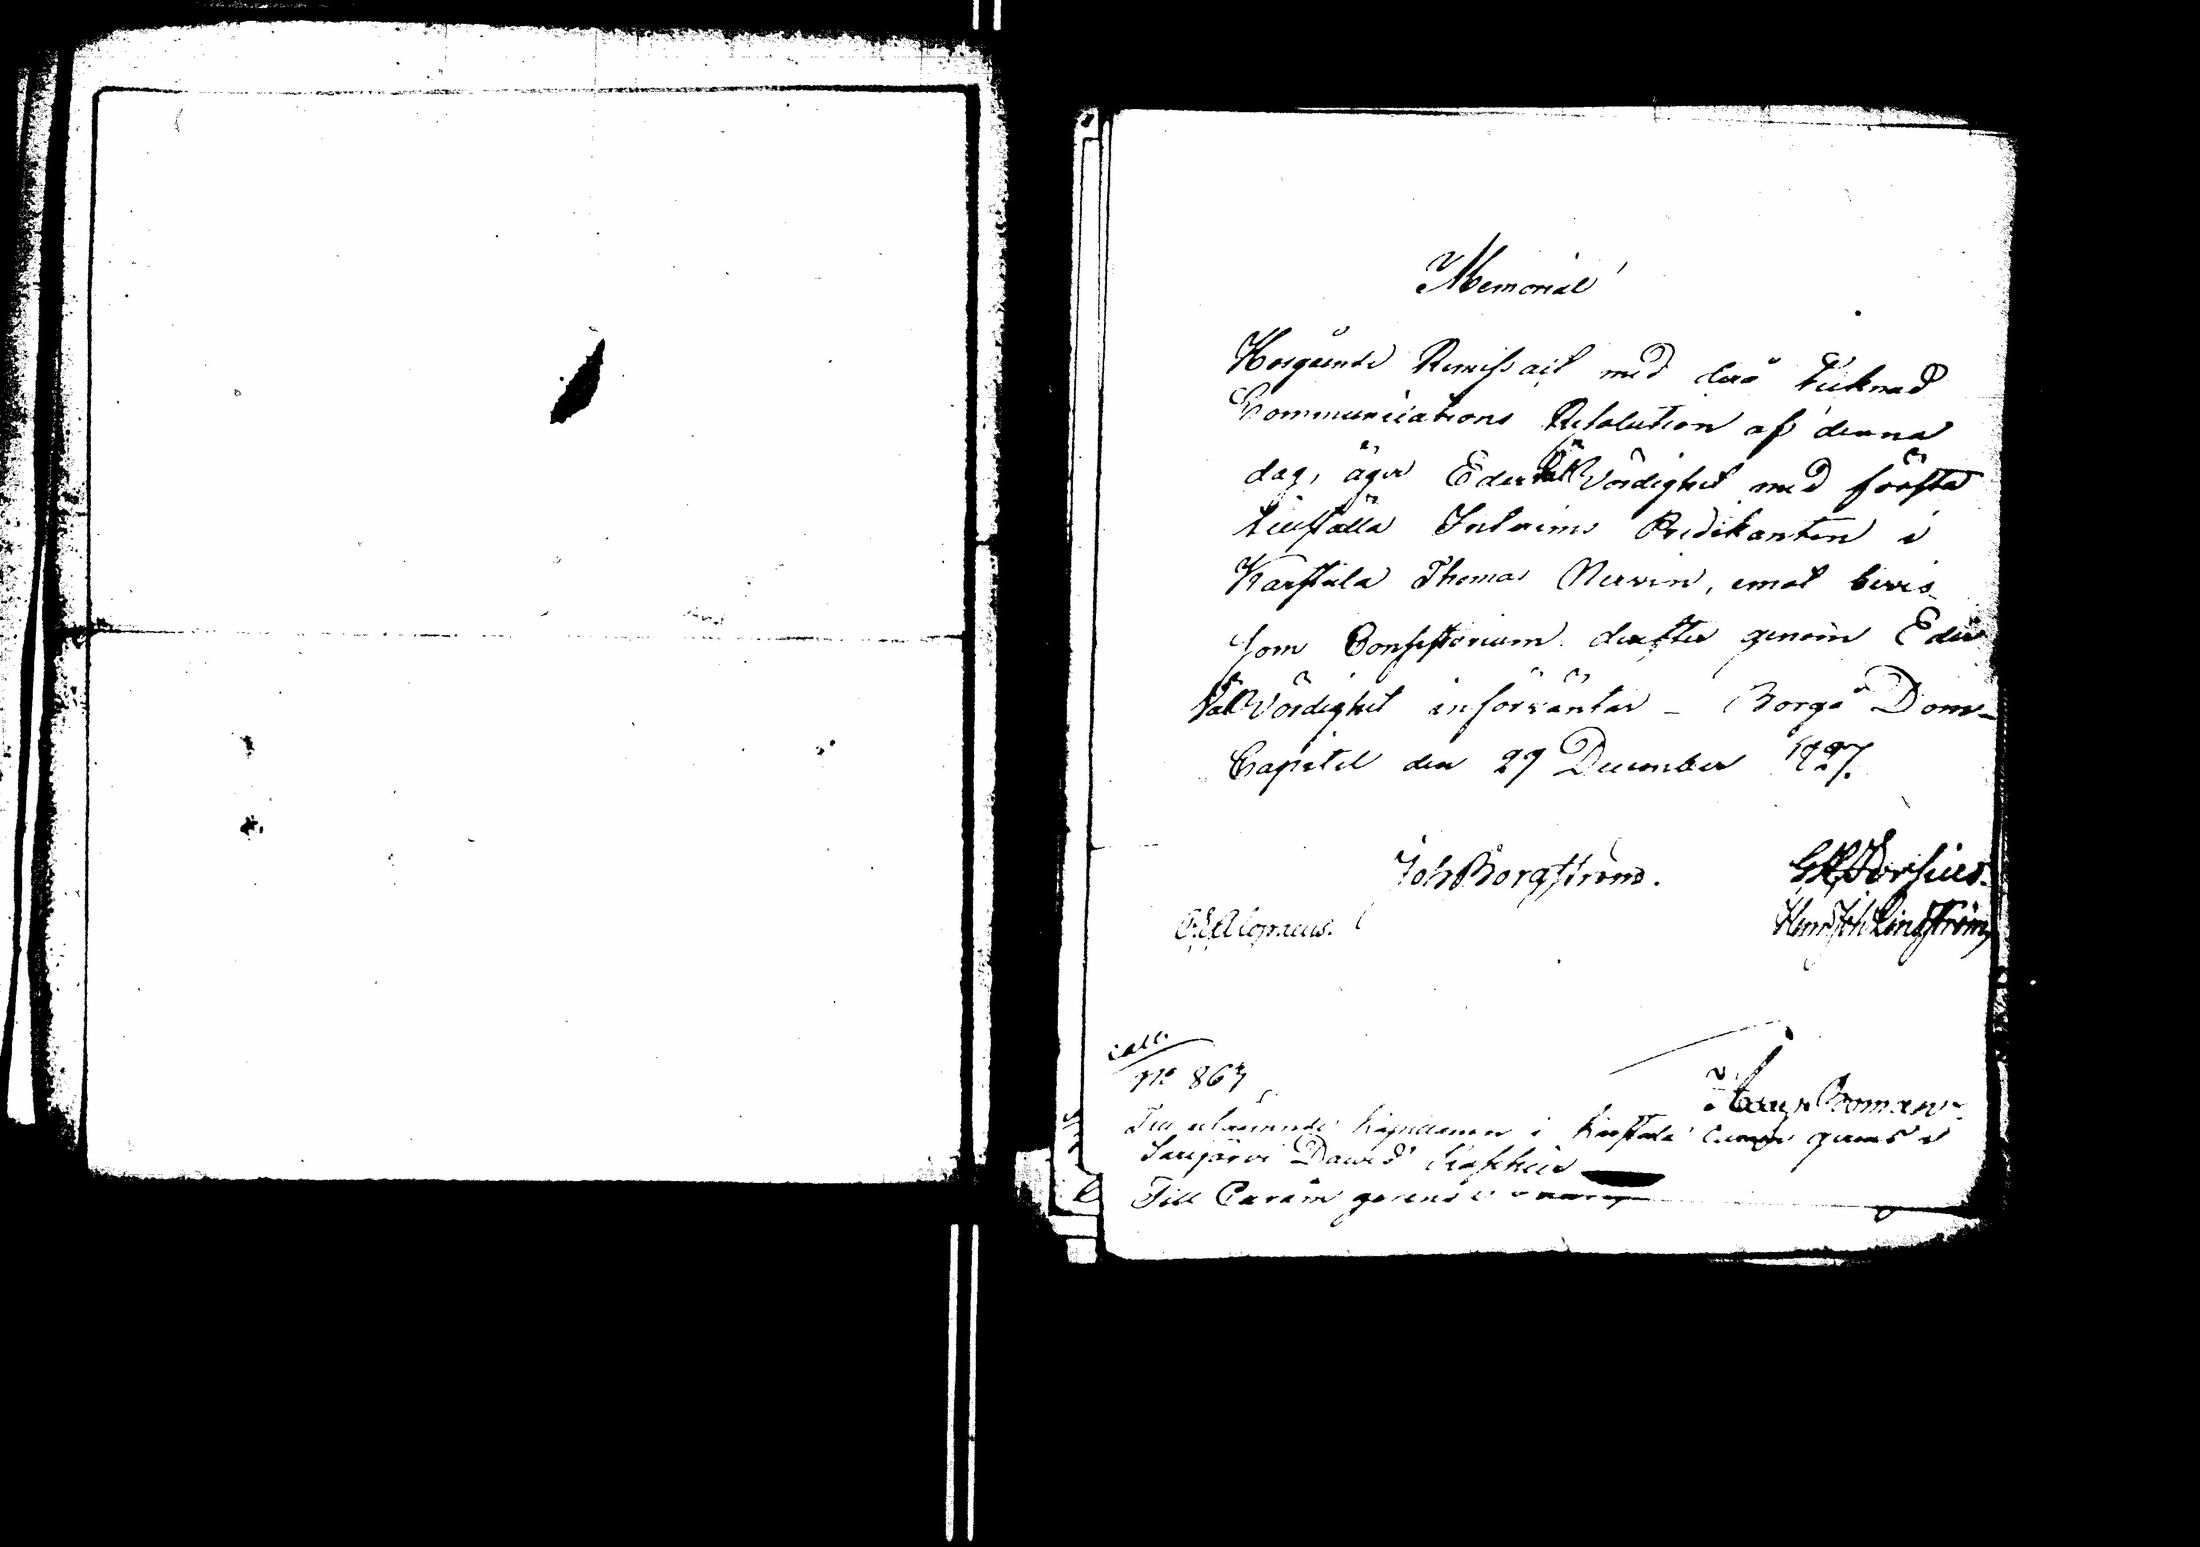 Memorial
Hosgående Remiss acit med derå tecknad
Communications Resolution af denna
dag, äger Eder WälVördighet med första
tillställa Interims Predikanten i
Karstula Thomas Nervin, emot bevis
som Consistorium derefter genom Eder
WälVördighet införväntar _ Borgå Dom-
Capitel den 29 December 1827.
Joh Borgström.
Alopaeus.
Henr Joh Lindström
No 867
Boman
Till utnämnde Kapellanen i Karstula
Saarijärvi David
Till